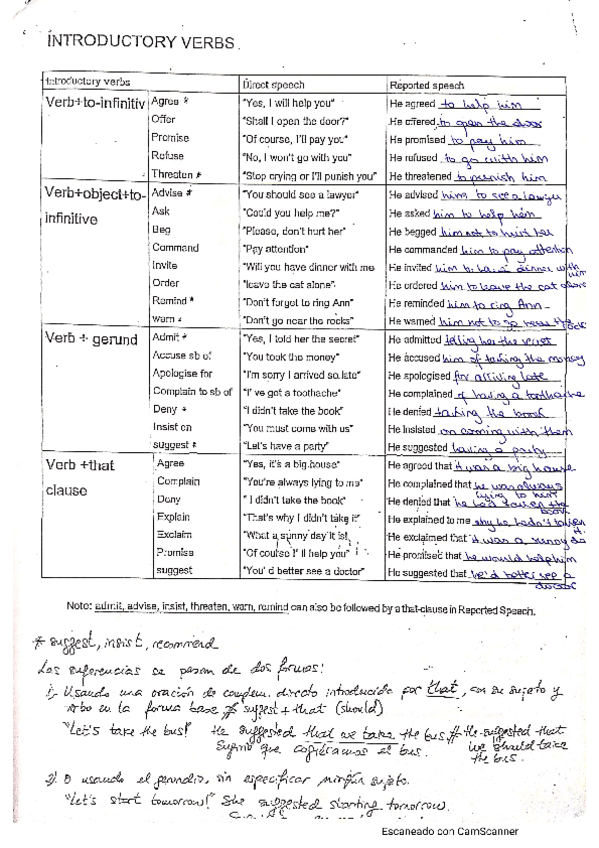 INTRODUCTORY VERBS
Introductory verbs Direct speech Reported speech
Verb+to-infinitiv Agree * "Yes, I will help you" He agreed to help him
Offer "Shall I open the door?" He offered to open the door
Promise "Of course, I'll pay you" He promised to pay him
Refuse "No, I won't go with you" He refused to go with him
Threaten * "Stop crying or I'll punish you" He threatened to punish him
Verb+object+to-infinitive Advise * "You should see a lawyer" He advised him to see a lawyer
Ask "Could you help me?" He asked him to help him
Beg "Please, don't hurt her" He begged him not to hurt her
Command "Pay attention" He commanded him to pay attention
Invite "Will you have dinner with me He invited him to have dinner with him
Order "leave the cat alone" He ordered him to leave the cat alone
Remind * "Don't forget to ring Ann" He reminded him to ring Ann
warn * "Don't go near the rocks" He warned him not to go near the rocks
Verb + gerund Admit * "Yes, I told her the secret" He admitted telling her the secret
Accuse sb of "You took the money" He accused him of taking the money
Apologise for "I'm sorry I arrived so late" He apologised for arriving late
Complain to sb of "I've got a toothache" He complained of having a toothache
Deny * "I didn't take the book" He denied taking the book
Insist on "You must come with us" He insisted on coming with them
suggest * "Let's have a party" He suggested having a party
Verb +that clause Agree "Yes, it's a big house" He agreed that it was a big house
Complain "You're always lying to me" He complained that he was always lying to him
Deny " I didn't take the book" He denied that he had taken the book
Explain "That's why I didn't take it" He explained to me why he hadn't taken it.
Exclaim "What a sunny day it is! He exclaimed that it was a sunny da
Promise "Of course I' ll help you" He promised that he would help him
suggest "You' d better see a doctor" He suggested that he'd better see a doctor
Note: admit, advise, insist, threaten, warn, remind can also be followed by a that-clause in Reported Speech.
* suggest, insist, recommend
Las sugerencias se pasan de dos formas:
1) Usando una oración de complem. directo introducida por that, con su sujeto y
verbo en la forma base * suggest + that (should)
"Let's take the bus! He suggested that we take the bus // He suggested that
Sugirió que cogiéramos el bus. we should take
the bus.
2) O usando el gerundio, sin especificar ningún sujeto.
"Let's start tomorrow!" She suggested starting tomorrow.
Escaneado con CamScanner